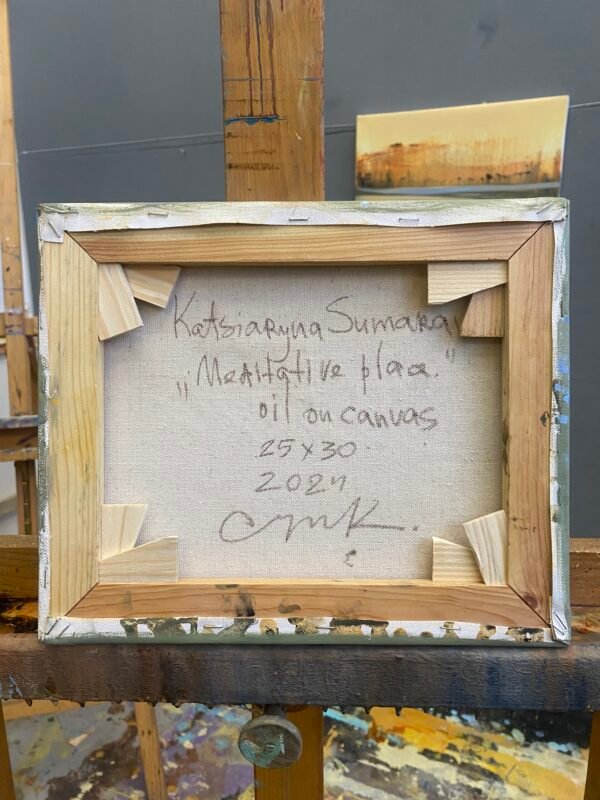 Katsiaryna Sumarai
„Meditative place."
oil on canvas
25x30
2024